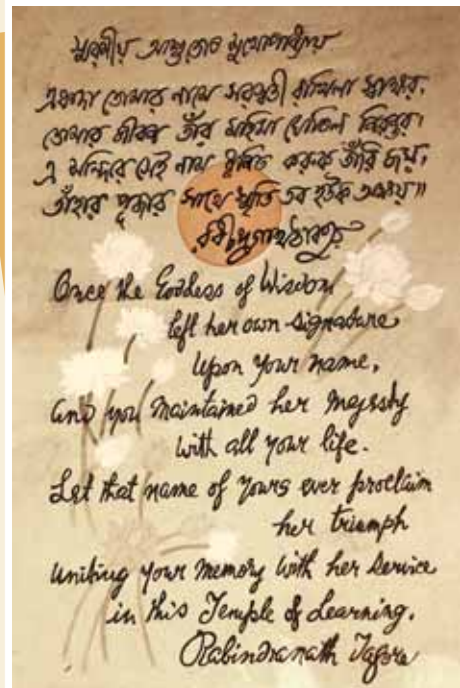 স্মরণীয় আশুতোষ মুখোপাধ্যায়
একদা তোমার নামে সরস্বতী রাখিলা স্বাক্ষর,
তোমার জীবন তাঁর মহিমা ঘোষিল নিরন্তর।
এ মন্দিরে সেই নাম ধ্বনিত করুক তাঁরি জয়,
তাঁহার পূজার সাথে স্মৃতি তব হউক অক্ষয়॥
রবীন্দ্রনাথ ঠাকুর
Once the Goddess of Wisdom
left her own signature
upon your name,
and you maintained her majesty
with all your life.
Let that name of yours ever proclaim
her triumph
uniting your memory with her service
in this Temple of Learning.
Rabindranath Tagore